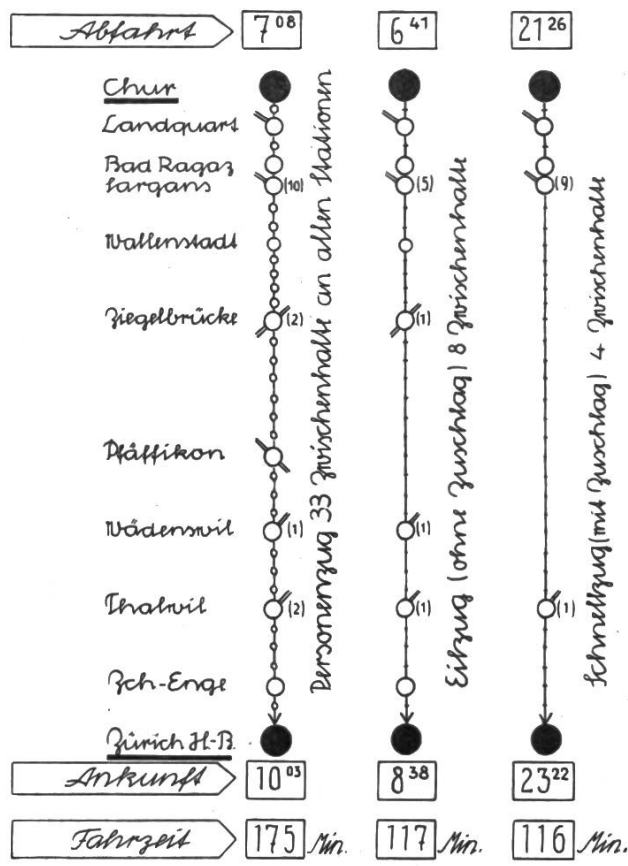 Abfahrt 7 08 6 41 21 26
Chur
Landquart
Bad Ragaz
Sargans (10) (5) (9)
Wallenstadt
Ziegelbrücke (2) (1)
Pfäffikon
Wädenswil (1) (1)
Thalwil (2) (1) (1)
Zch-Enge
Zürich H-B.
Personenzug 33 Zwischenhalte an allen Stationen
Eilzug (ohne Zuschlag) 8 Zwischenhalte
Schnellzug (mit Zuschlag) 4 Zwischenhalte
Ankunft 10 03 8 38 23 22
Fahrzeit 175 Min. 117 Min. 116 Min.